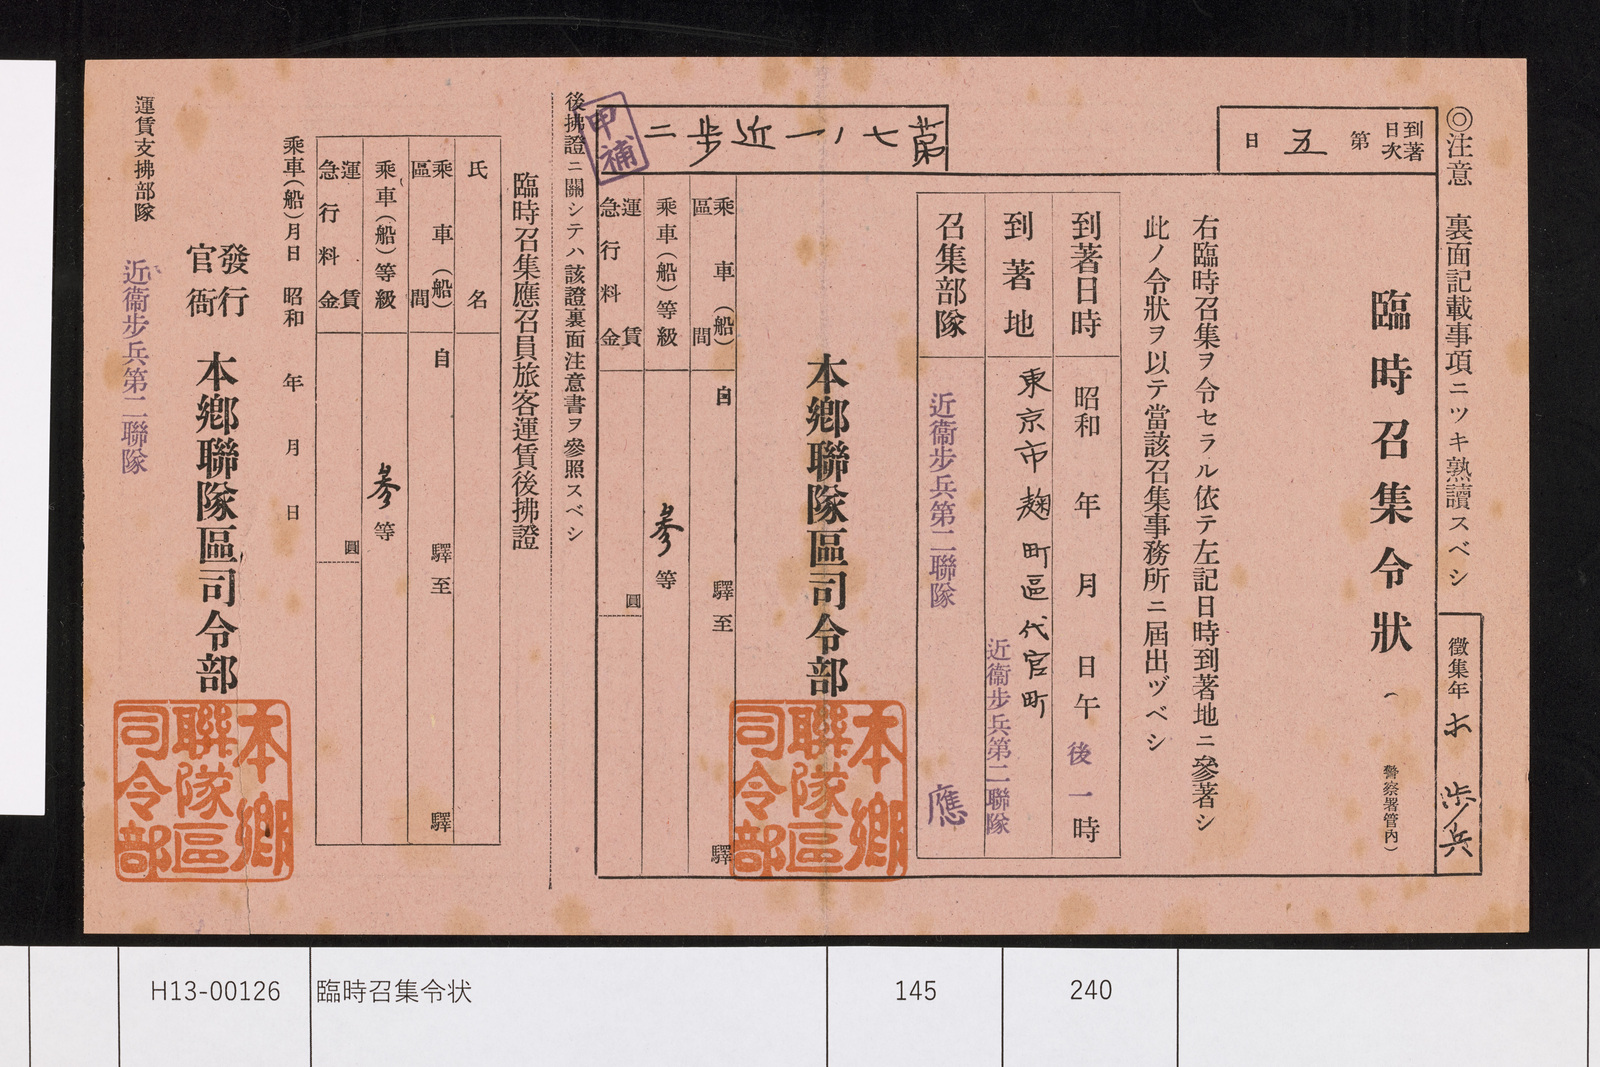 ◎注意 裏面記載事項ニツキ熟讀スベシ
徵集年 歩兵
到著日次 第五日
臨時召集令狀
(警察署管內)
右臨時召集ヲ令セラル依テ左記日時到著地ニ參著シ
此ノ令狀ヲ以テ當該召集事務所ニ屆出ヅベシ
到著日時 昭和 年 月 日午後一時
到著地 東京市麹町區代官町
近衞步兵第二聯隊
召集部隊 近衞步兵第二聯隊 應
第七ノ一近歩二
甲補
本鄕聯隊區司令部
本鄕聯隊區司令部
乘車(船)區間 自 驛至 驛
乘車(船)等級 參等
運賃急行料金 圓
後拂證ニ關シテハ該證裏面注意書ヲ參照スベシ
臨時召集應召員旅客運賃後拂證
氏名
乘車(船)區間 自 驛至 驛
乘車(船)等級 參等
運賃急行料金 圓
乘車(船)月日 昭和 年 月 日
發行官衙 本鄕聯隊區司令部
本鄕聯隊區司令部
運賃支拂部隊 近衞步兵第二聯隊
H13-00126 臨時召集令状 145 240